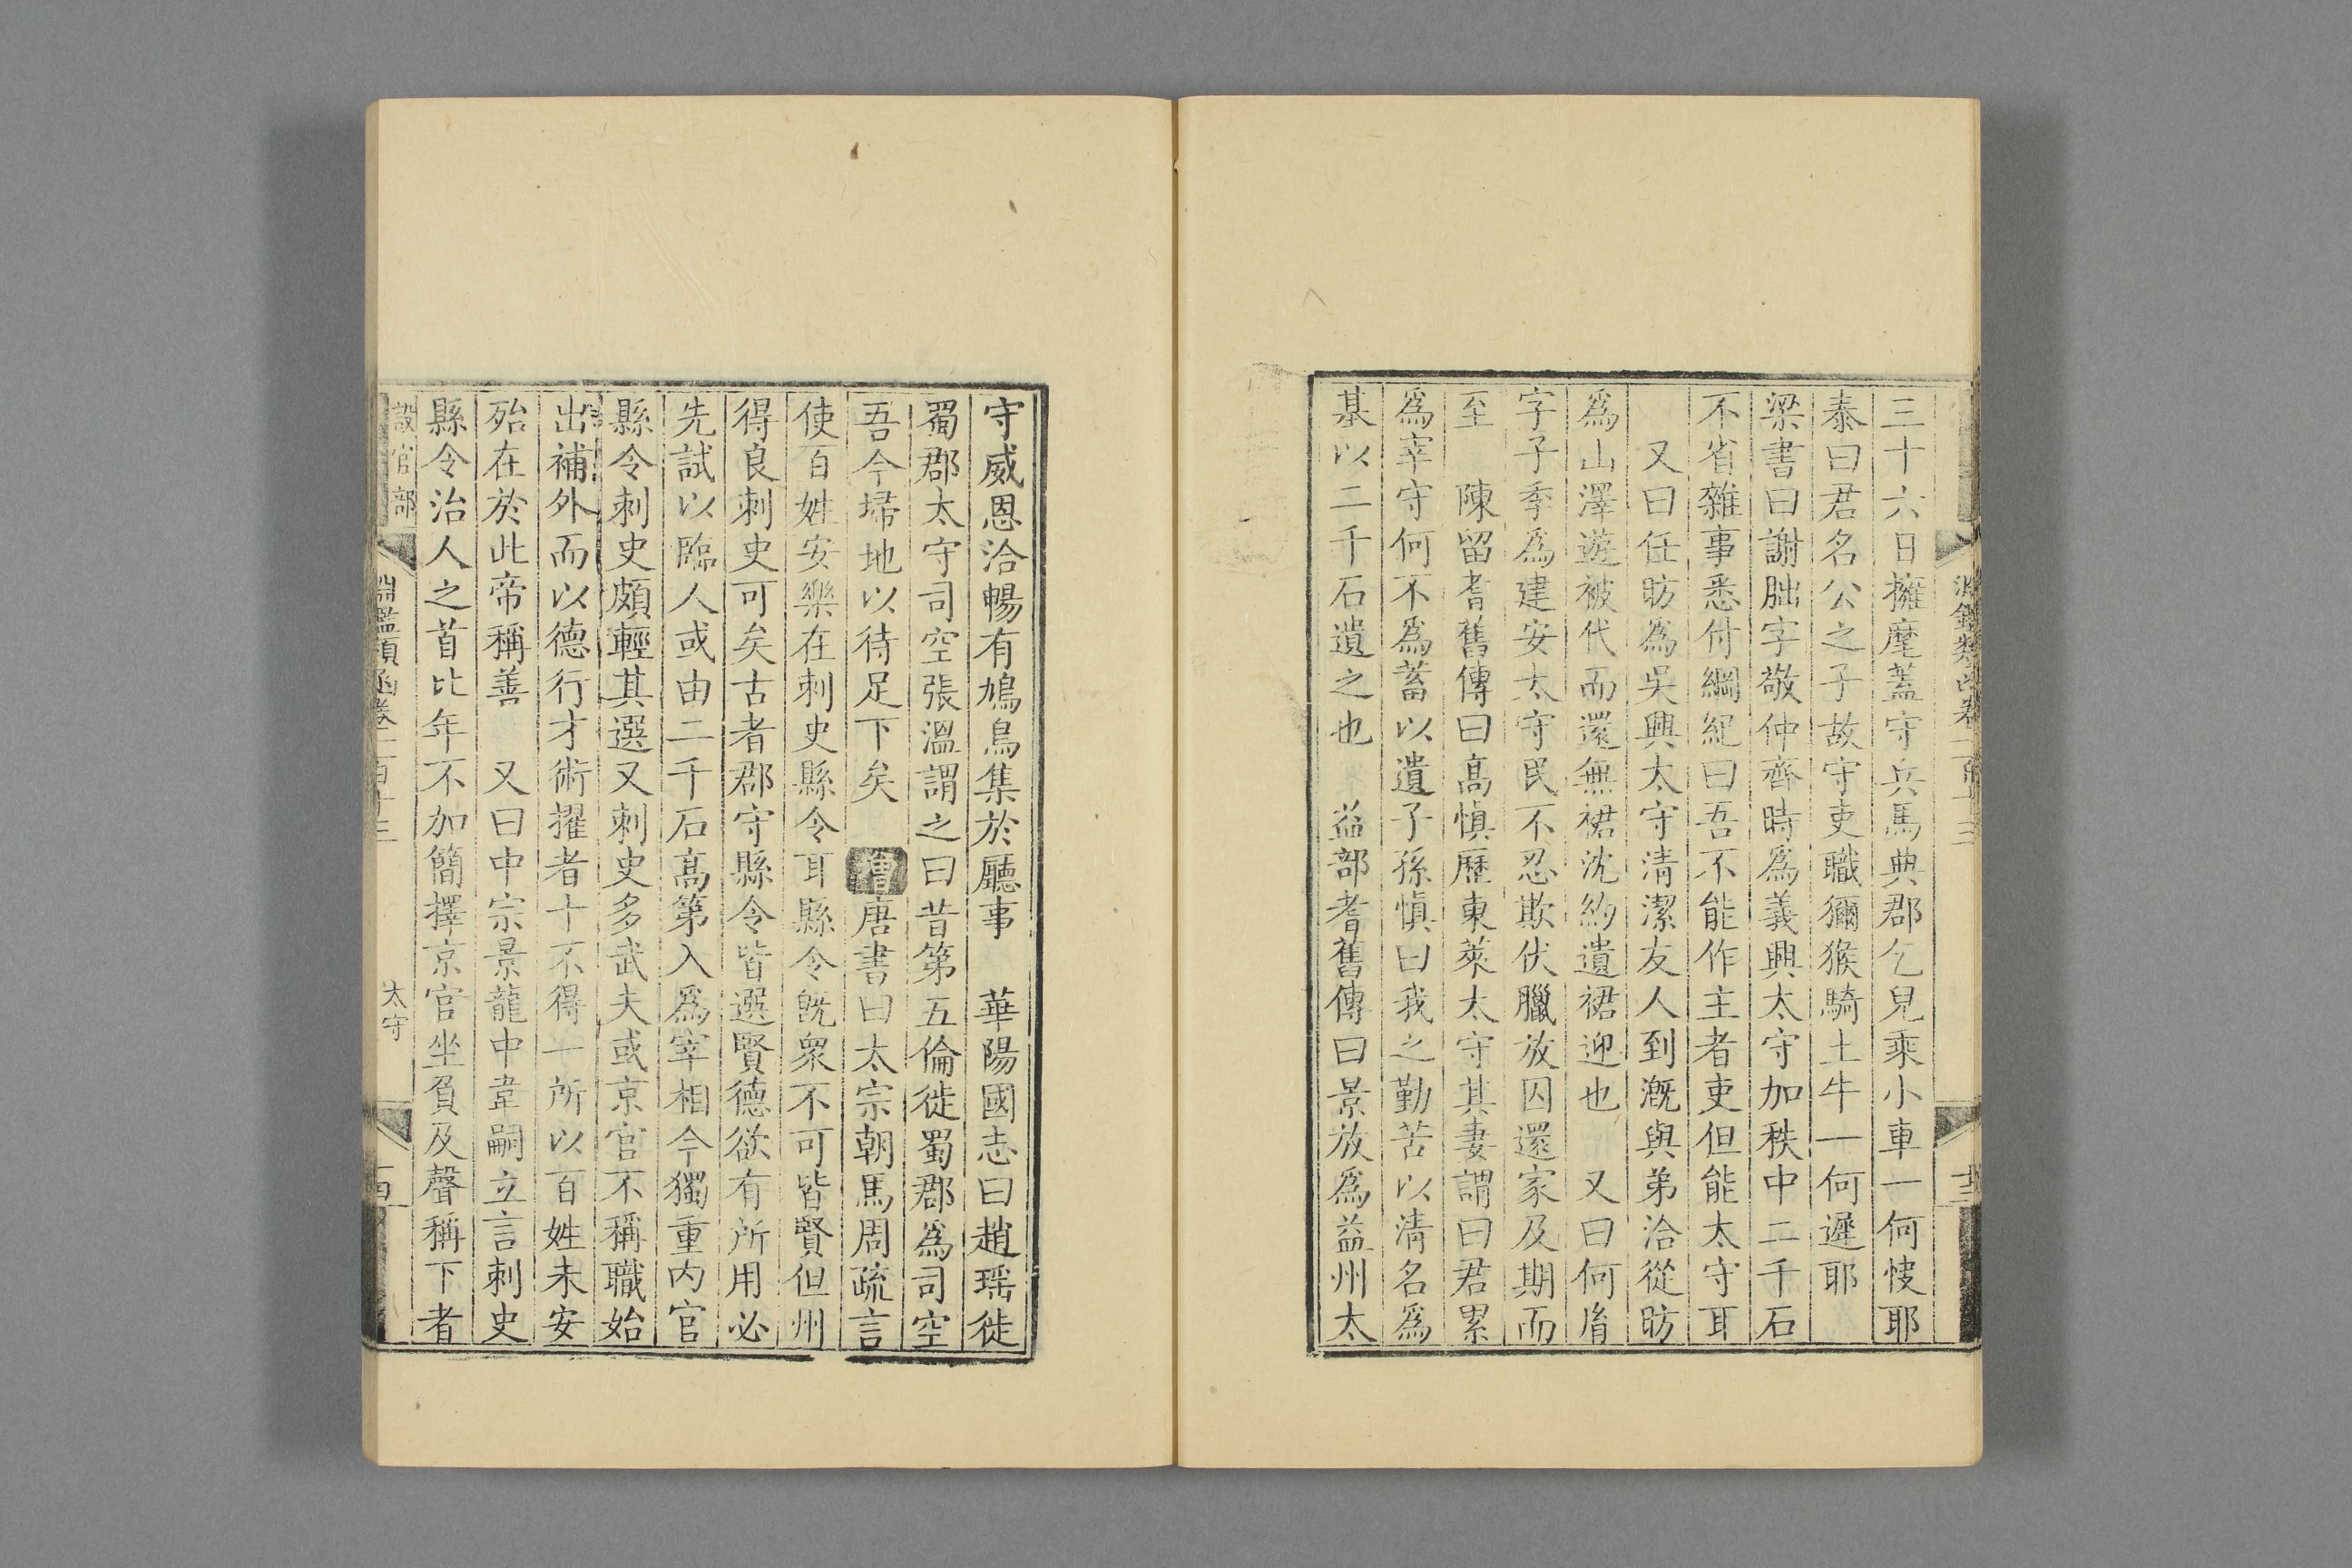 三十六日擁麾蓋守兵馬典郡乞兒乘小車一何𩣡耶
泰曰君名公之子故守吏職獼猴騎土牛一何遲耶
梁書曰謝朏字敬仲齊時爲義興太守加秩中二千石
不省雜事悉付綱紀曰吾不能作主者吏但能太守耳
又曰任昉爲吳興太守清潔友人到漑與弟洽從昉
爲山澤遊被代而還無裙沈約遺裙迎也　又曰何胤
字子季爲建安太守民不忍欺伏臘放囚還家及期而
至　陳留耆舊傳曰高愼歷東萊太守其妻謂曰君累
爲宰守何不爲蓄以遺子孫愼曰我之勤苦以清名爲
基以二千石遺之也　益部耆舊傳曰景放爲益州太
守威恩洽暢有鳩鳥集於廳事　華陽國志曰趙瑶徙
蜀郡太守司空張溫謂之曰昔第五倫徙蜀郡爲司空
吾今埽地以待足下矣　增唐書曰太宗朝馬周疏言
使百姓安樂在刺史縣令耳縣令旣衆不可皆賢但州
得良刺史可矣古者郡守縣令皆選賢德欲有所用必
先試以臨人或由二千石高第入爲宰相今獨重內官
縣令刺史頗輕其選又刺史多武夫或京官不稱職始
出補外而以德行才術擢者十不得一所以百姓未安
殆在於此帝稱善　又曰中宗景龍中韋嗣立言刺史
縣令治人之首比年不加簡擇京官坐負及聲稱下者
設官部
淵鑑類函卷一百十三
太守